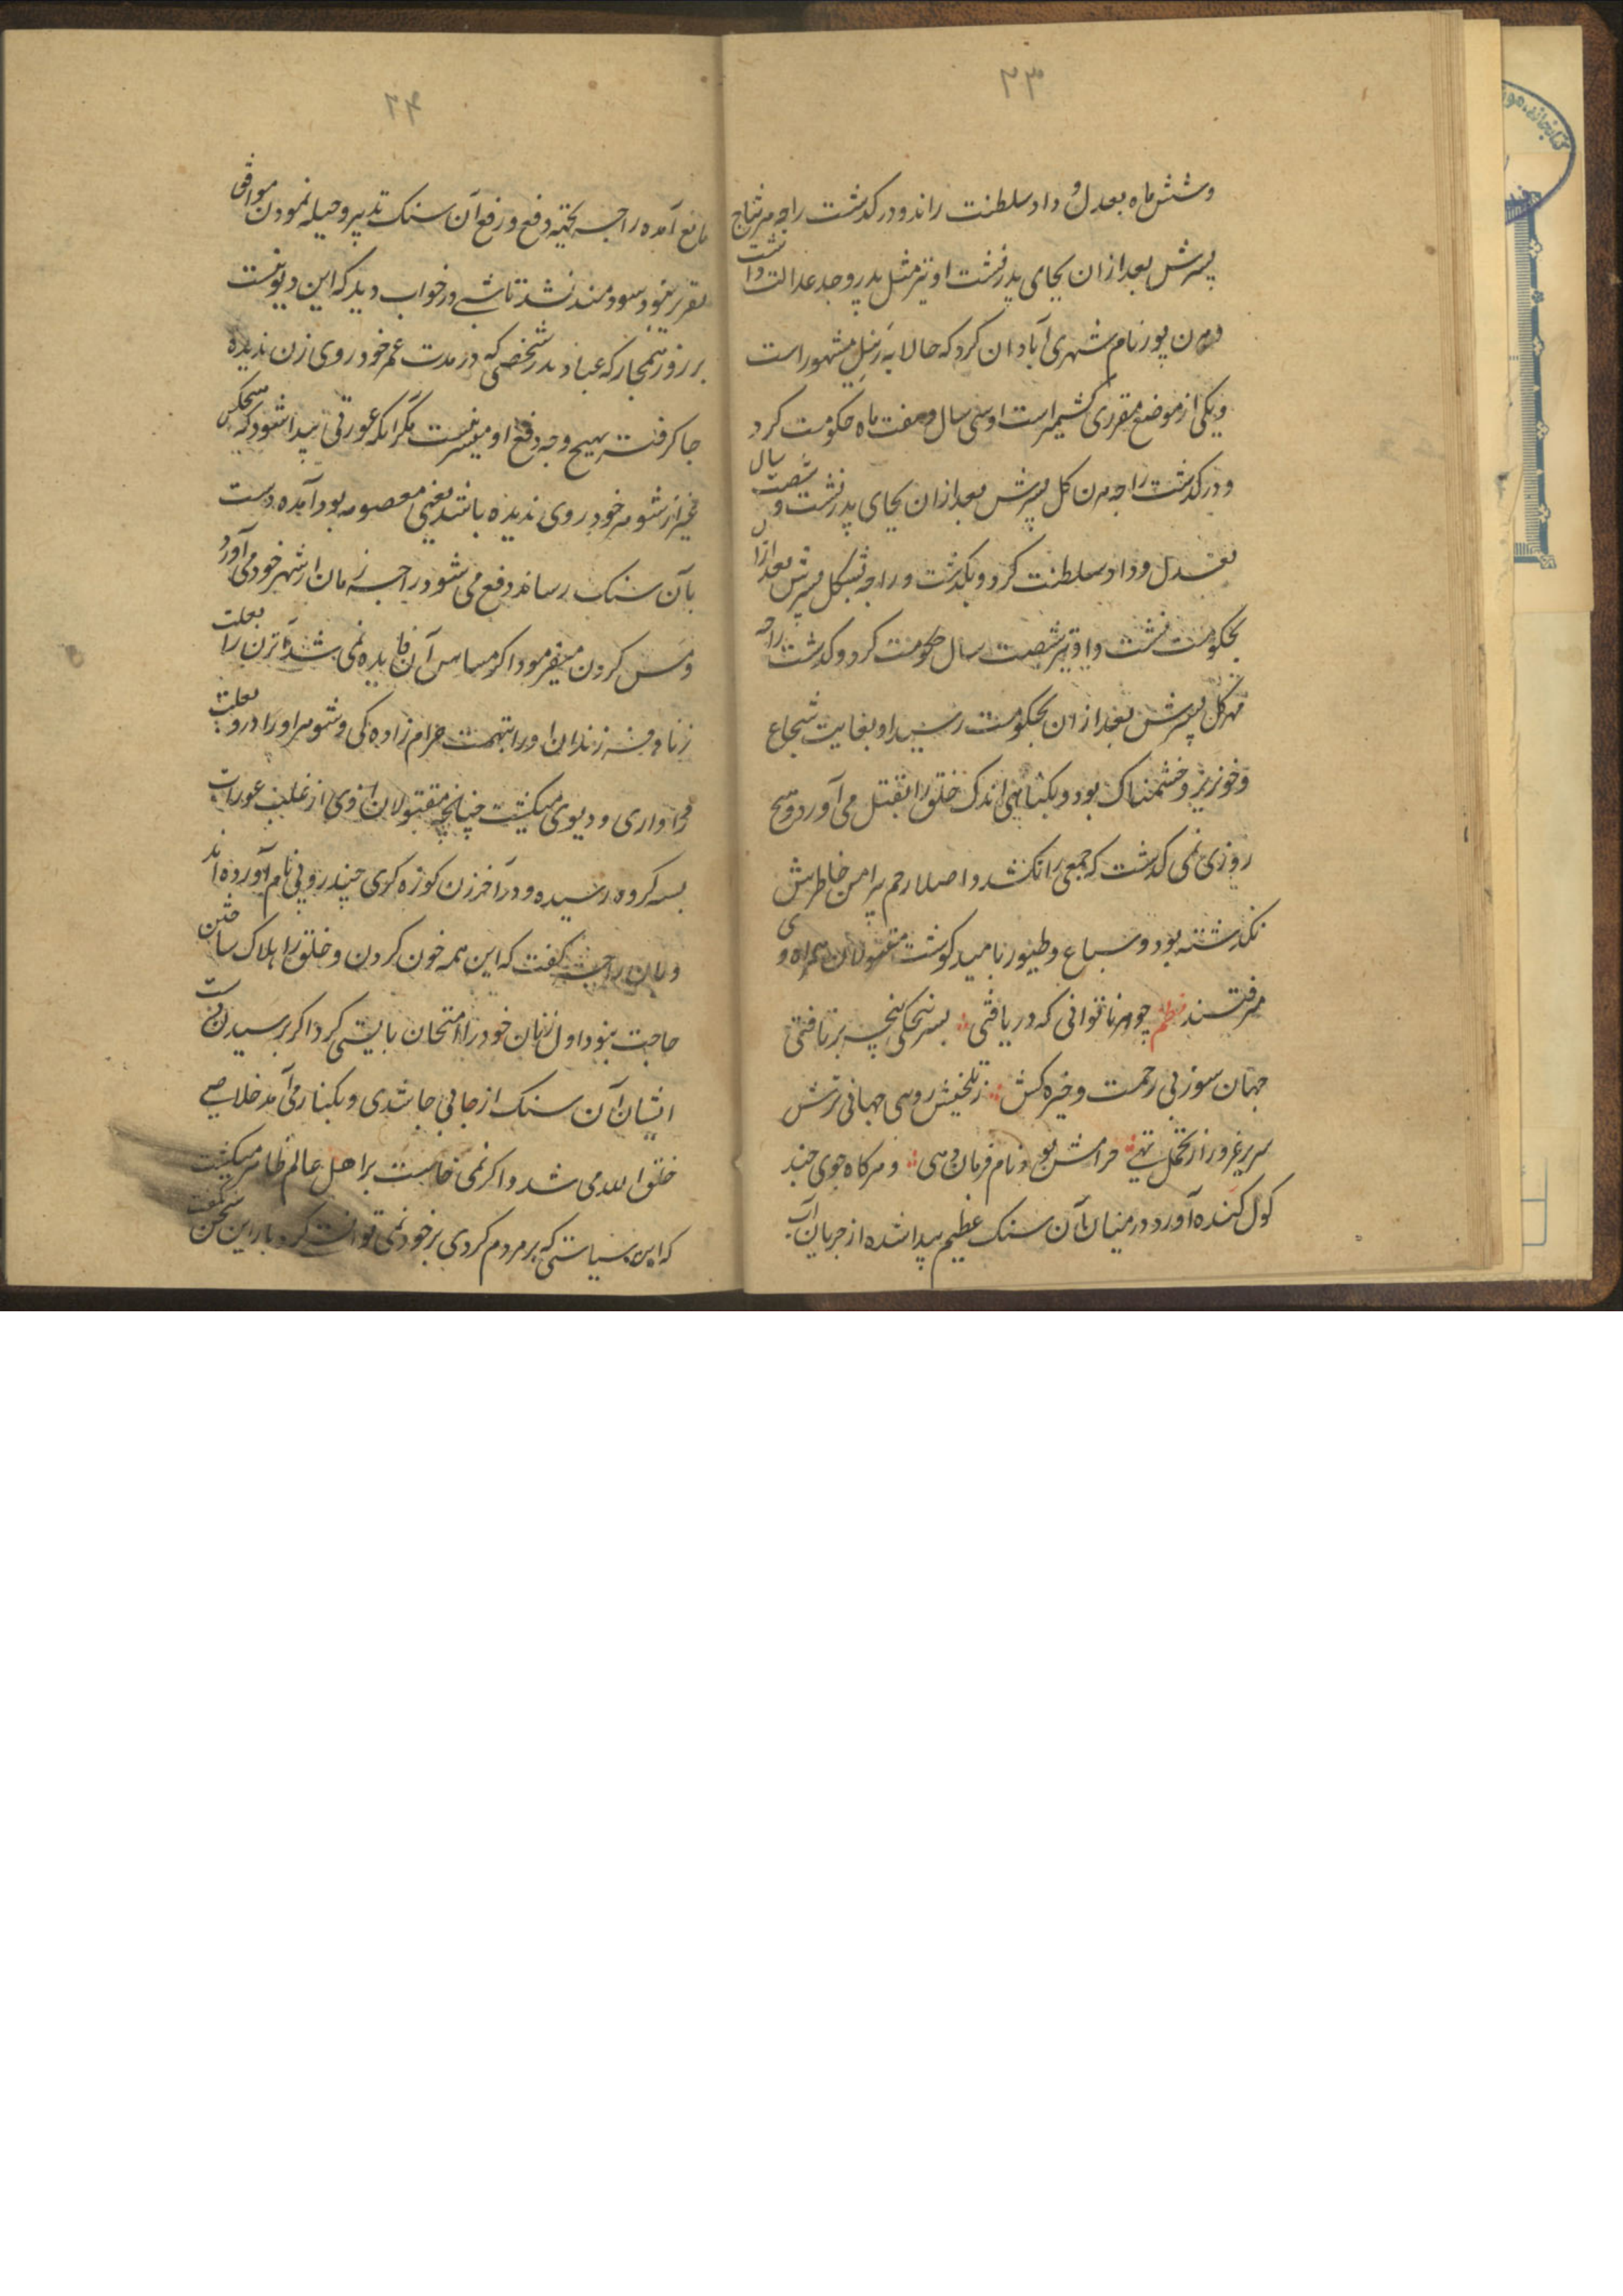 ۲۳
وشش ماه بعدل و داد سلطنت راند و درکذشت راجه
پسرش بعد ازان بجای پدر نشست او نیز مثل پدر وجد عدالت داشت
پور نام شهری آبادان کرد که حالا به رنیل مشهور است
ویکی از موضع مقرری کشمیر است او سی سال و هفت ماه حکومت کرد
و درکذشت راجه هرن کل پسرش بعد ازان بجای پدر نشست و شصت سال
بعدل و داد سلطنت کرد و بکذشت و راجه پسرش بعد ازان
بحکومت نشست و او نیز شصت سال حکومت کرد و کذشت راجه
مهرکل پسرش بعد ازان بحکومت رسید او بغایت شجاع
و خونریز و خشمناک بود و بکناهی اندک خلق را بقتل می آورد و هیچ
روزی نمی کذشت که جمعی را نکشد و اصلا رحم پیرامن خاطرش
نکذشته بود و سباع و طیور بامید کوشت مقتولان همراه وی
میرفتند نظم چو هر ناتوانی که دریافتی بسرپنجکی پنجه برتافتی
جهان سوز بی رحمت و خیره کش ز تلخیش روی جهانی ترش
سریر غرور از تحمل تهی حرامش بود نام فرمان دهی و هرکاه جوی چند
کول کنده آورد در میان آن سنک عظیم پیدا شده از جریان آب
۲۴
مانع آمده راجه بجهته دفع و رفع آن سنک تدبیر و حیله نمودن موافق
تقریر نبود سودمند نشد تا شبی در خواب دید که این دیویست
بر زور که عبادت در شخصی که در مدت عمر خود روی زن ندیده
جا کرفته بهیچ وجه دفع او میسر نیست مکر آنکه عورتی پیدا شود که هیچکس
غیر از شوهر خود روی ندیده باشد یعنی معصومه بود آمده دست
بآن سنک رساند دفع می شود راجه زنان از شهر خود می آورد
و مس کردن میفرمود اکر مساس آن فایده نمی شد آن زن را بعلت
زنا و فرزندان او را بتهمت حرام زاده کی و شوهر او را در و بعلت
و دیوی میکشت چنانچه مقتولان از وی از غلب عورات
بسه کروه رسیده و در آخر زن کوزه کری چندروپی نام آورده اند
و راجه کفت که این همه خون کردن و خلق را هلاک ساختن
حاجت نبود اول زنان خود را امتحان بایستی کرد اکر برسیدن دست
ایشان آن سنک از جائی جا شدی و بکنار می آمد خلاصی
خلق الله می شد و اکر نمی خاست بر اهل عالم ظاهر میکشت
که این سیاستی که بر مردم کردی بر خود نمی توانست کرد بار این سخن